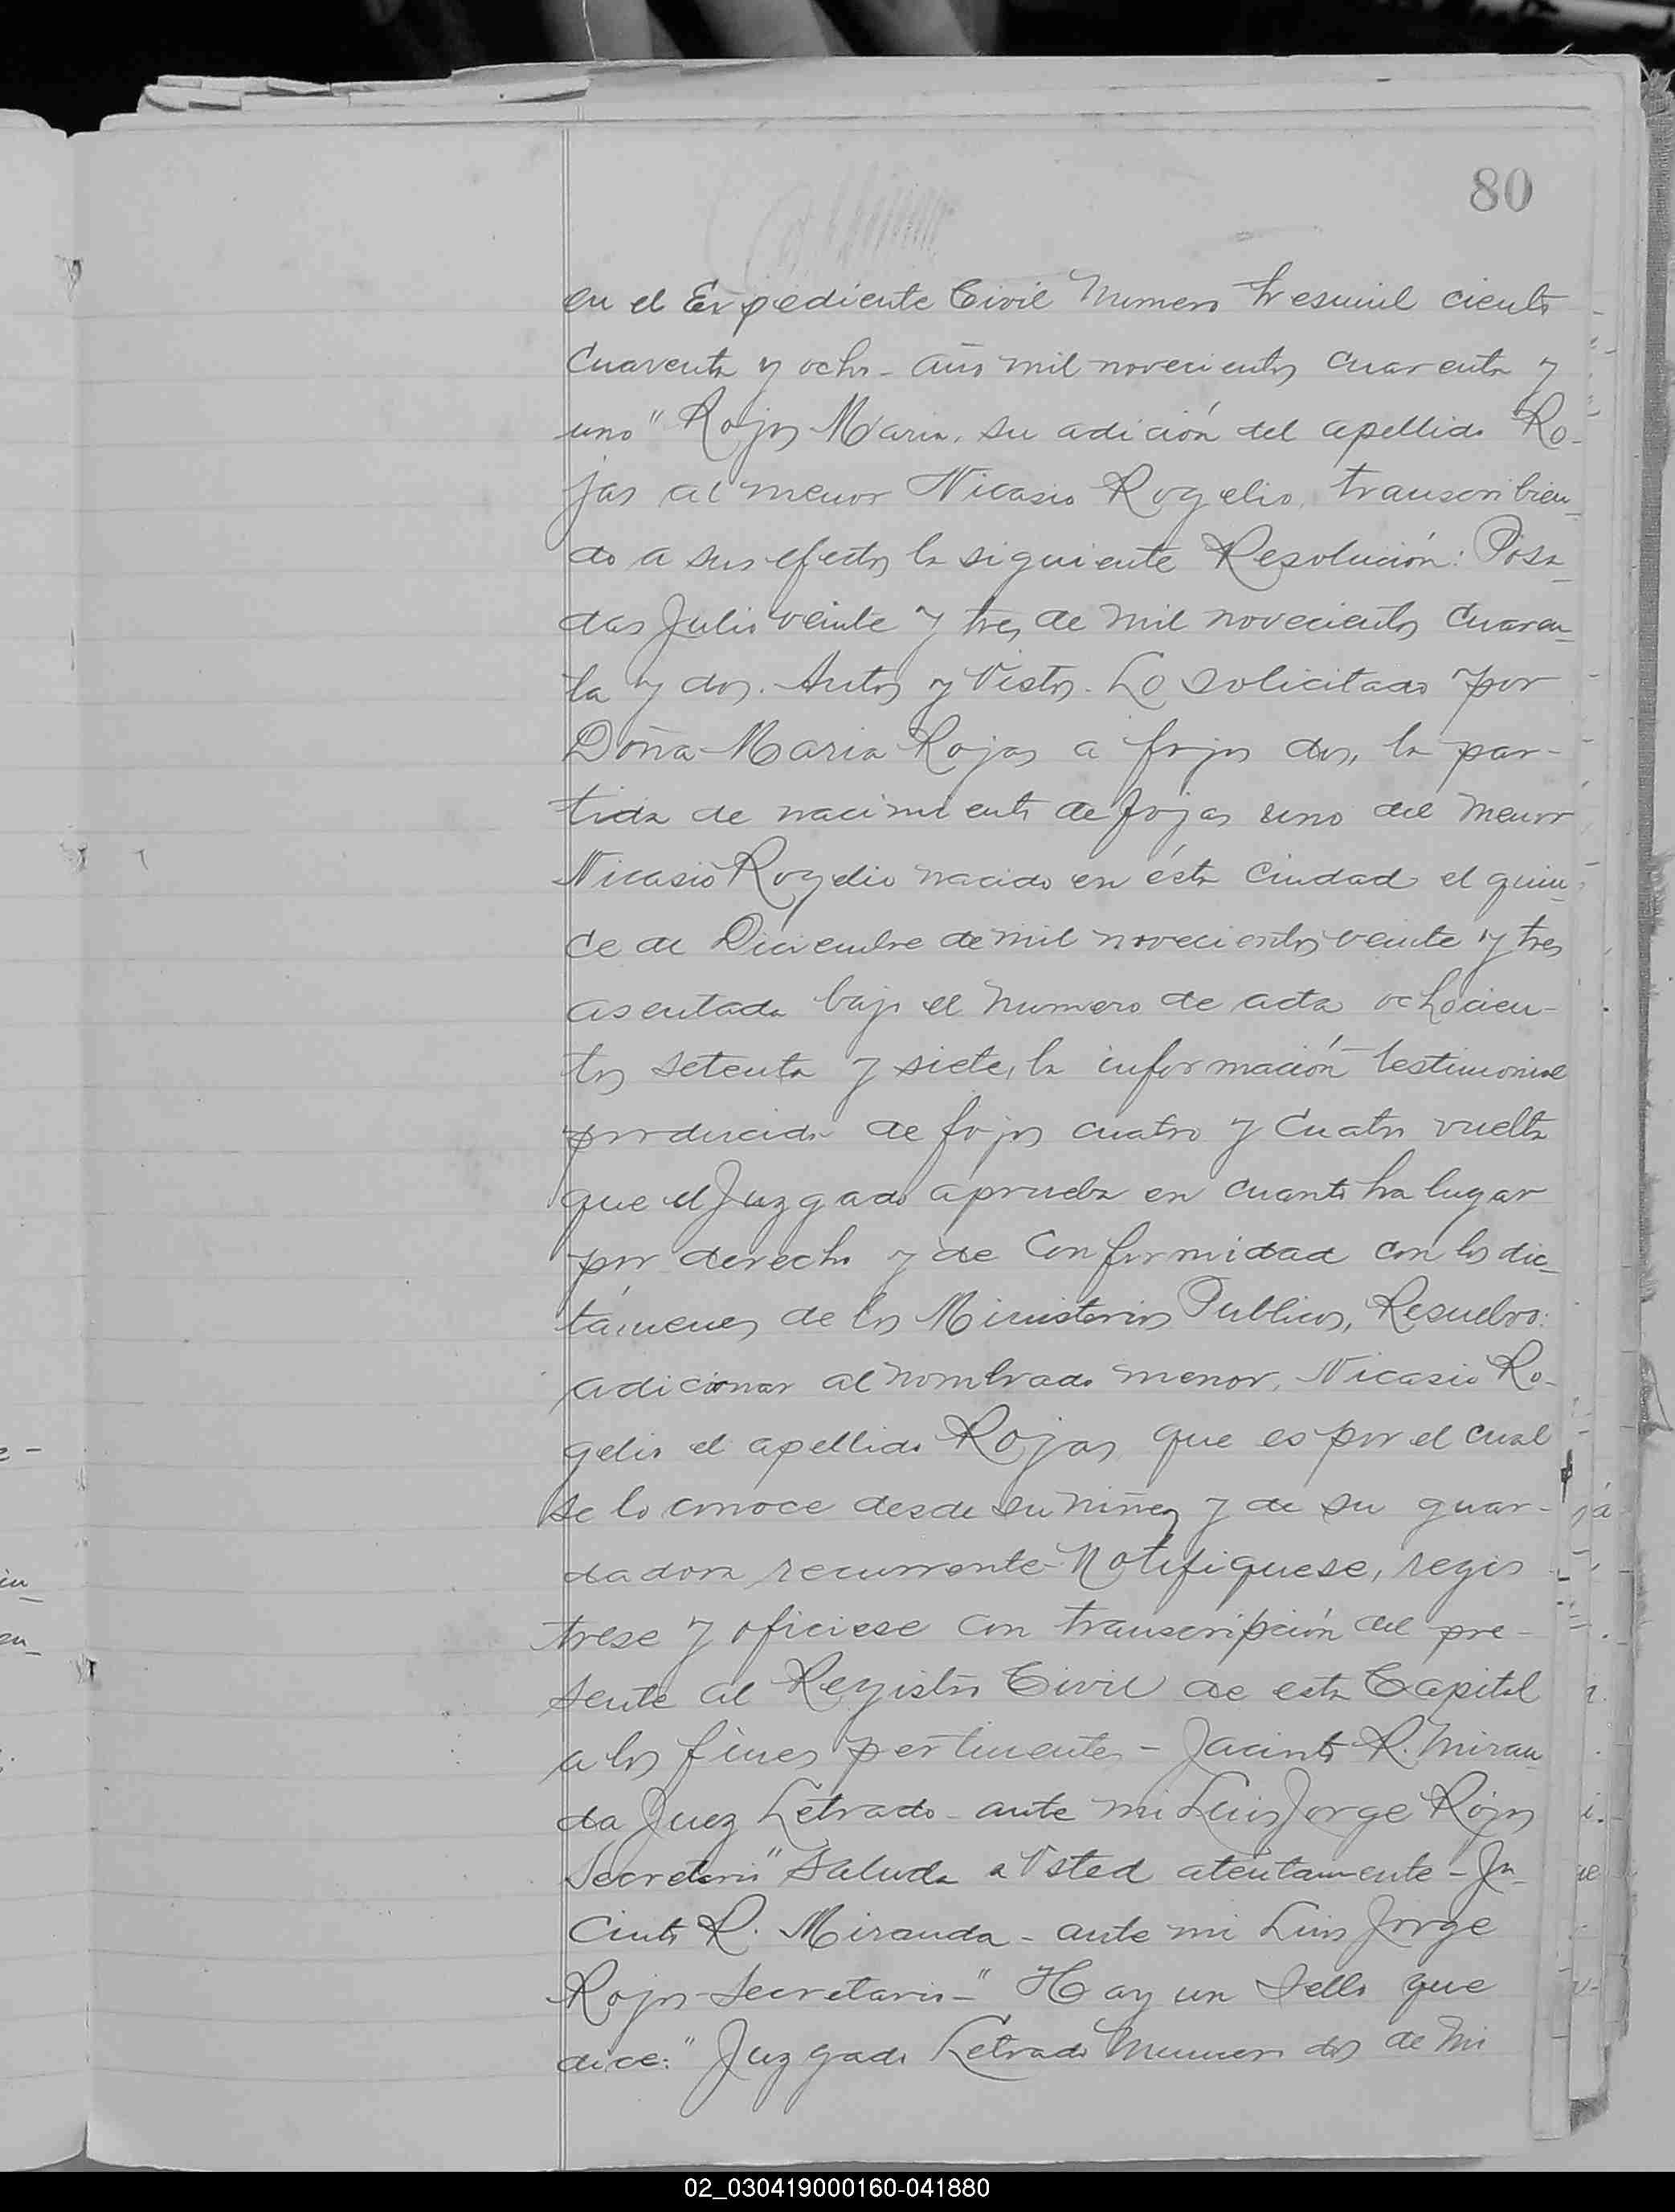 80
en el Expediente Civil Numero tresmil ciento
cuarenta y ocho - año mil novecientos cuarenta y
uno " Rojas Maria, su adición del apellido Ro-
jas al menor Nicasio Rogelio, transcribien-
do a sus efectos la siguiente Resolución: Posa-
das Julio veinte y tres de mil novecientos cuaren-
ta y dos. Autos y Vistos. Lo solicitado por
Doña Maria Rojas a fojas dos, la par-
tida de nacimiento de fojas uno del menor
Nicasio Rogelio nacido en ésta ciudad el quin-
ce de Diciembre de mil novecientos veinte y tres
asentada bajo el numero de acta ochocien-
tos setenta y siete, la información testimonial
producida de fojas cuatro y cuatro vuelta
que el Juzgado aprueba en cuanto ha lugar
por derecho y de conformidad con los dic-
támenes de los Ministerios Publicos, Resuelvo:
adicionar al nombrado menor, Nicasio Ro-
gelio el apellido Rojas que es por el cual
se lo conoce desde su niñez y de su guar-
dadora recurrente - Notifiquese, regis
trese y oficiese con transcripción del pre-
sente al Registro Civil de esta Capital
a los fines pertinentes - Jacinto R. Miran-
da Juez Letrado - ante mi Luis Jorge Rojas
Secretario" Saluda a Usted atentamente - Ja-
cinto R. Miranda - ante mi Luis Jorge
Rojas - Secretario -" Hay un Sello que
dice: " Juzgado Letrado Numero dos de Mi
02_030419000160-041880